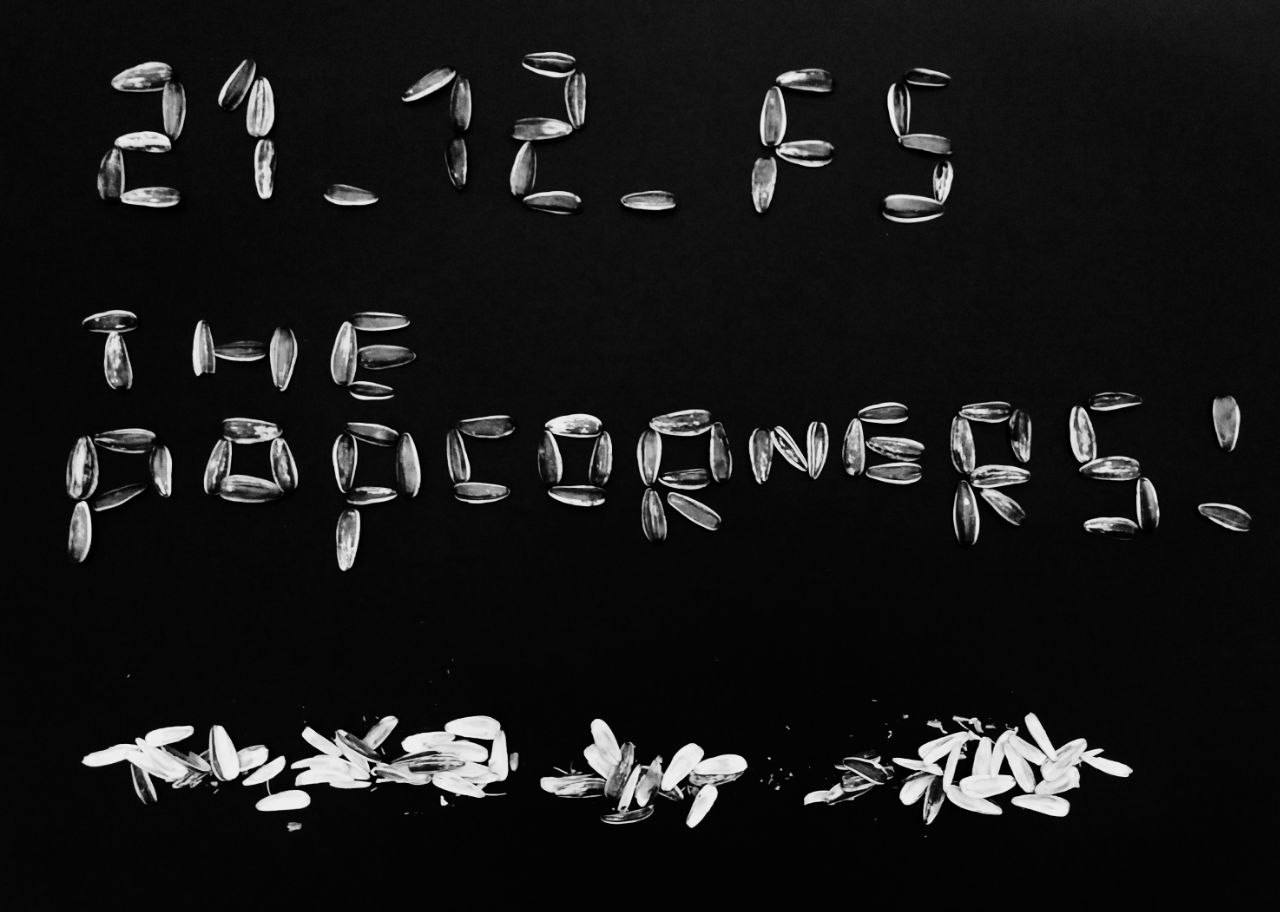 21_12_FS
THE
POPCORNERS!